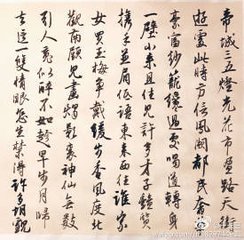 帝城三五燈光花市盈路天街
遊處此時方信鳳闕都民奢華
豪富紗籠纔過處喝道轉身
一壁小來且住見許多才子艷質
攜手並肩低語東來西往誰家
女買玉梅爭戴緩步香風度北
觀南顧見畫燭影裏神仙無數
引人魂似醉不如趁早步月歸
去這一雙情眼怎生禁得許多胡覷